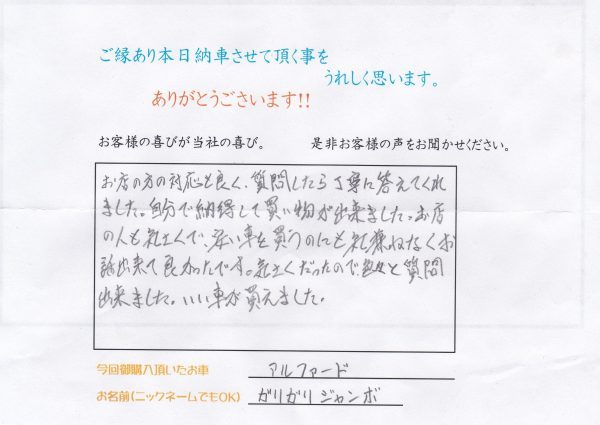 ご縁あり本日納車させて頂く事を
うれしく思います。
ありがとうございます!!
お客様の喜びが当社の喜び。 是非お客様の声をお聞かせください。
お店の方の対応も良く、質問したら丁寧に答えてくれ
ました。自分で納得して買い物が出来ました。お店
の人も気さくで、高い車を買うのにも気兼ねなくお
話出来て良かったです。気さくだったので と質問
出来ました。いい車が買えました。
今回御購入頂いたお車 アルファード
お名前(ニックネームでもOK) ガリガリジャンボ